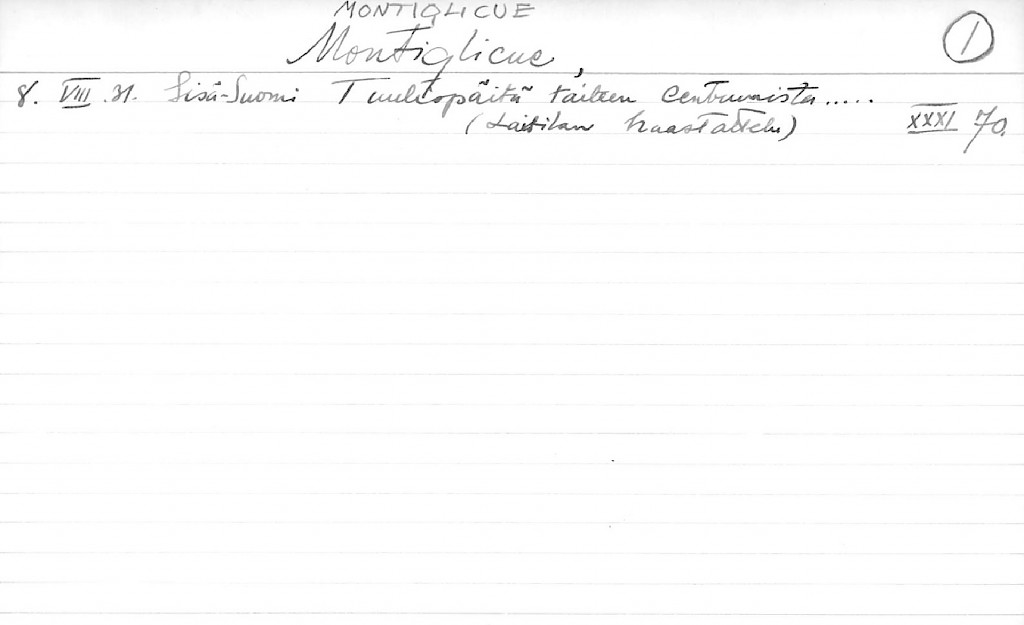 MONTIGLICUE
Montiglicue, ①
8. VIII .31. Sisä-Suomi Tuuliopäitä taiteen Centrumista.....
(Laitilan haastattelu) XXXI 70.